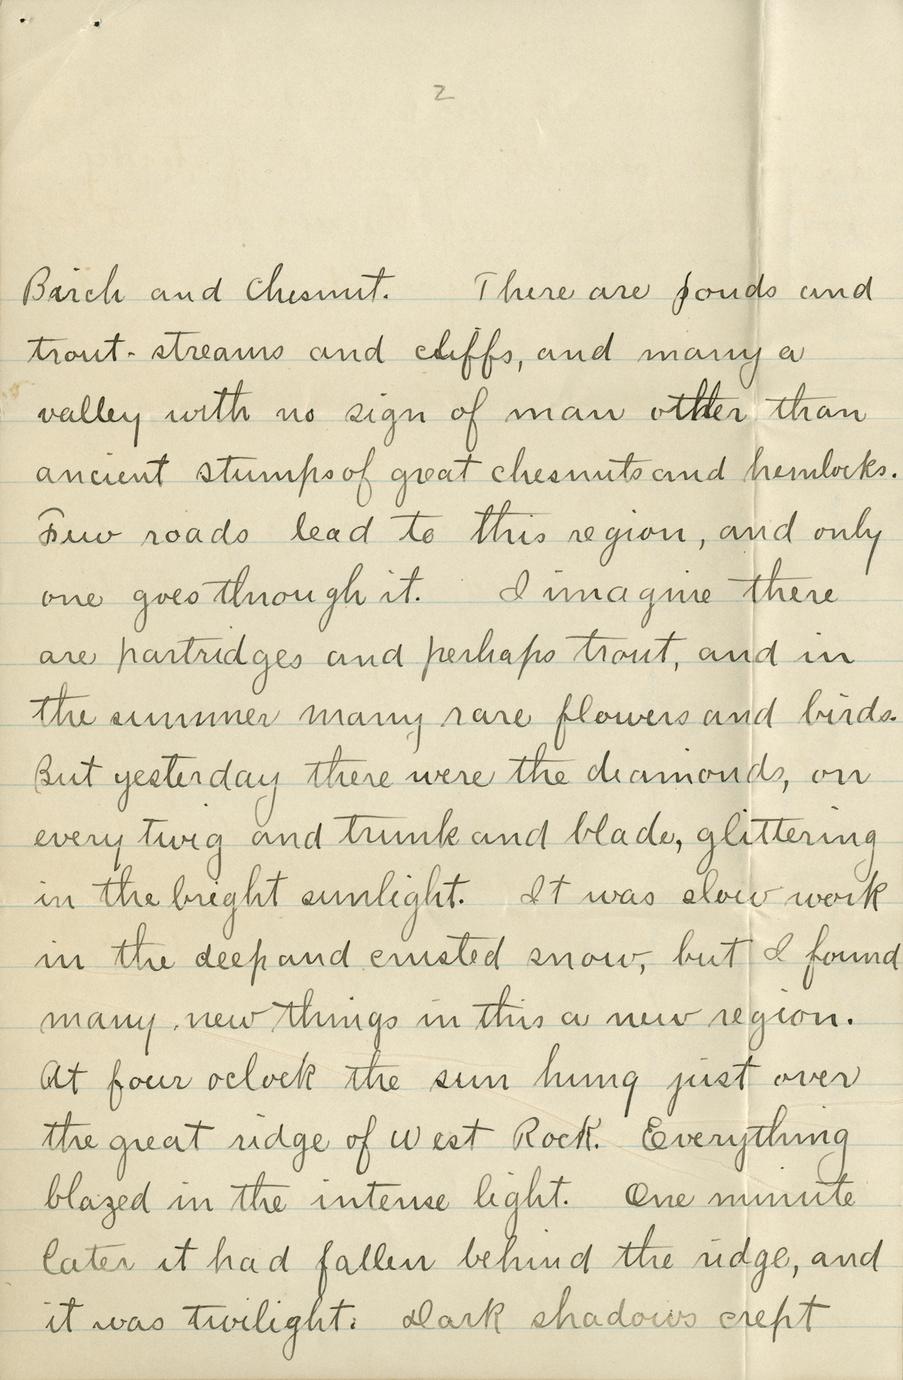 2
Birch and Chesnut. There are ponds and
trout-streams and cliffs, and many a
valley with no sign of man other than
ancient stumps of great chesnuts and hemlocks.
Few roads lead to this region, and only
one goes through it. I imagine there
are partridges and perhaps trout, and in
the summer many rare flowers and birds.
But yesterday there were the diamonds, on
every twig and trunk and blade, glittering
in the bright sunlight. It was slow work
in the deep and crusted snow, but I found
many new things in this a new region.
At four oclock the sun hung just over
the great ridge of West Rock. Everything
blazed in the intense light. One minute
later it had fallen behind the ridge, and
it was twilight. Dark shadows crept